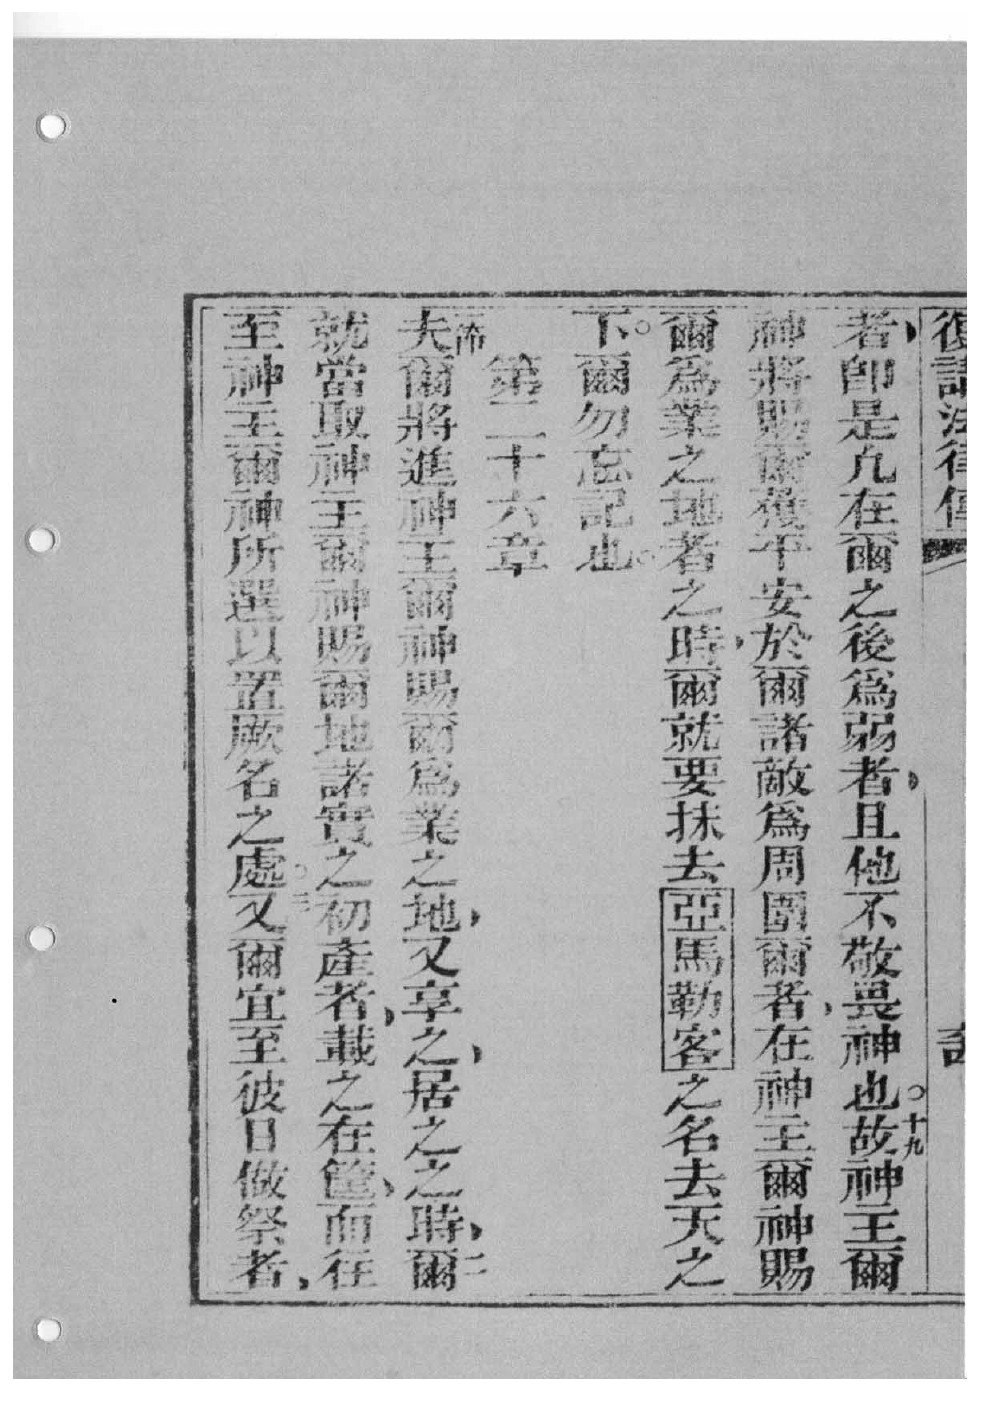 復講法律傳
者、卽是凡在爾之後爲弱者、且他不敬畏神也。十九故神主爾
神將賜爾獲平安於爾諸敵爲周圍爾者、在神主爾神賜
爾爲業之地者之時、爾就要抹去亞馬勒客之名去天之
下。爾勿忘記也。
第二十六章
一節夫爾將進神主爾神賜爾爲業之地、又享之、居之之時、二爾
就當取神主爾神賜爾地諸實之初產者、載之在筐、而往
至神主爾神所選以置厥名之處。三又爾宜至彼日做祭者、